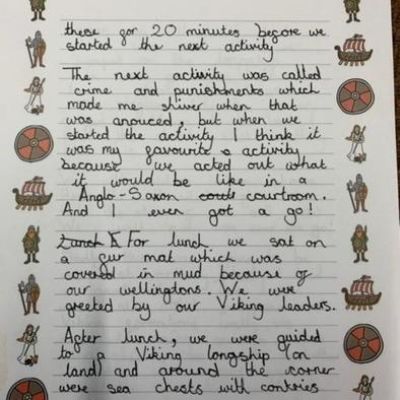 these for 20 minutes before we
started the next activity
The next activity was called
crime and punishments which
made me shiver when that
was anouced, but when we
started the activity I think it
was my favourite activity
because we acted out what
it would be like in a
Anglo-Saxon courtroom.
And I even got a go!
Lunch For lunch we sat on
a fur mat which was
covered in mud because of
our wellingtons. We were
greeted by our Viking leaders.
After lunch, we were guided
to a Viking longship (on
land) and around the corner
were sea chests with contries